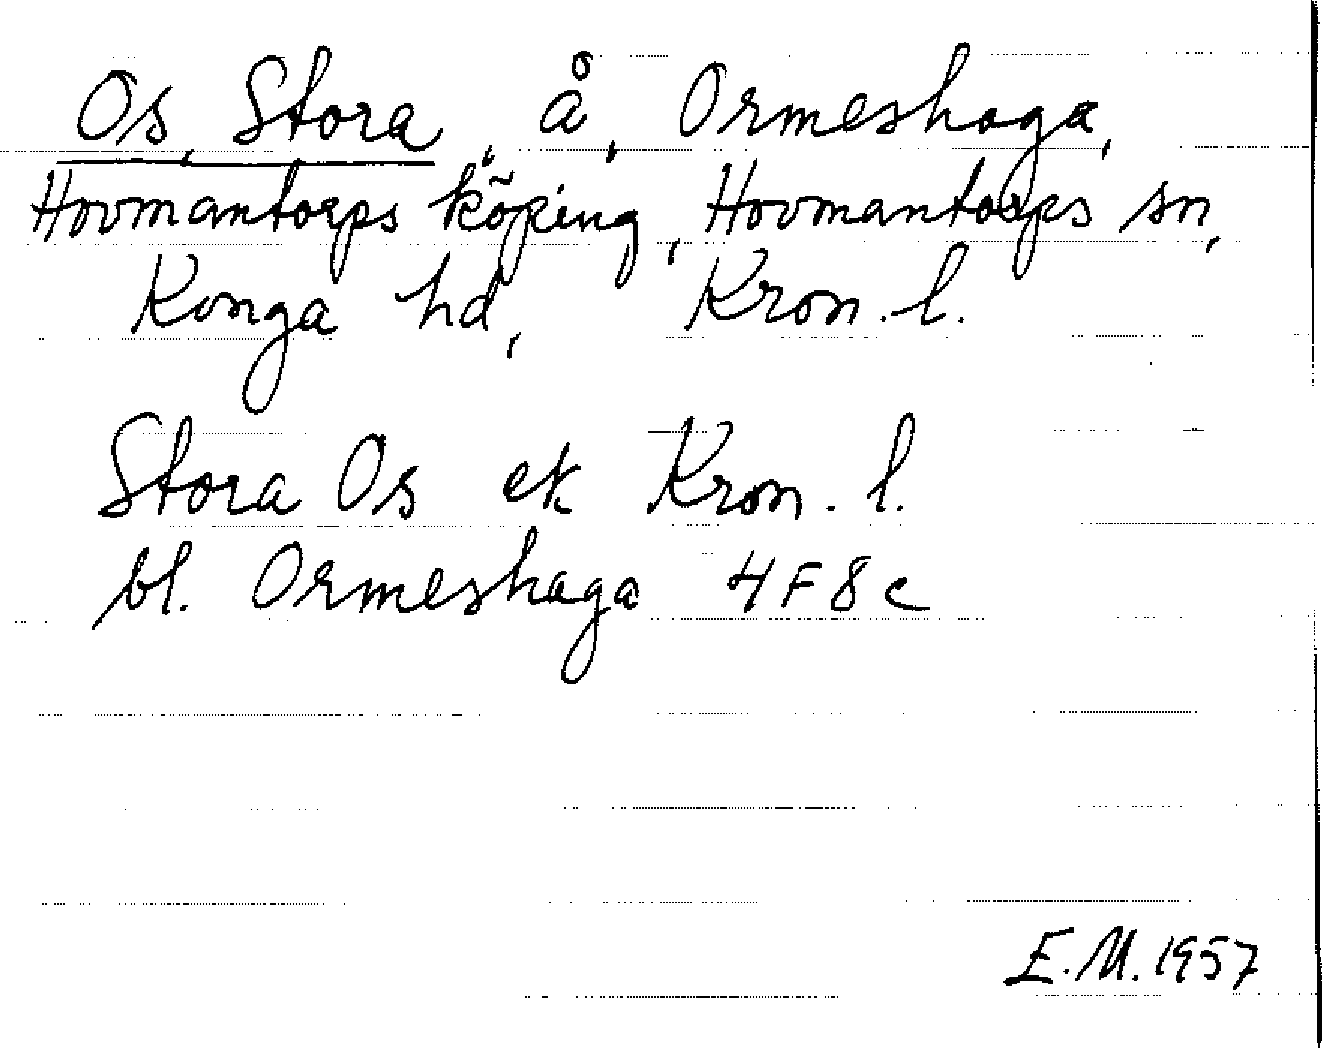 Os, Stora, å, Ormeshaga,
Hovmantorps köping, Hovmantorps sn,
Konga hd, Kron. l.
Stora Os ek Kron. l.
bl. Ormeshaga 4F8c
E.M. 1957